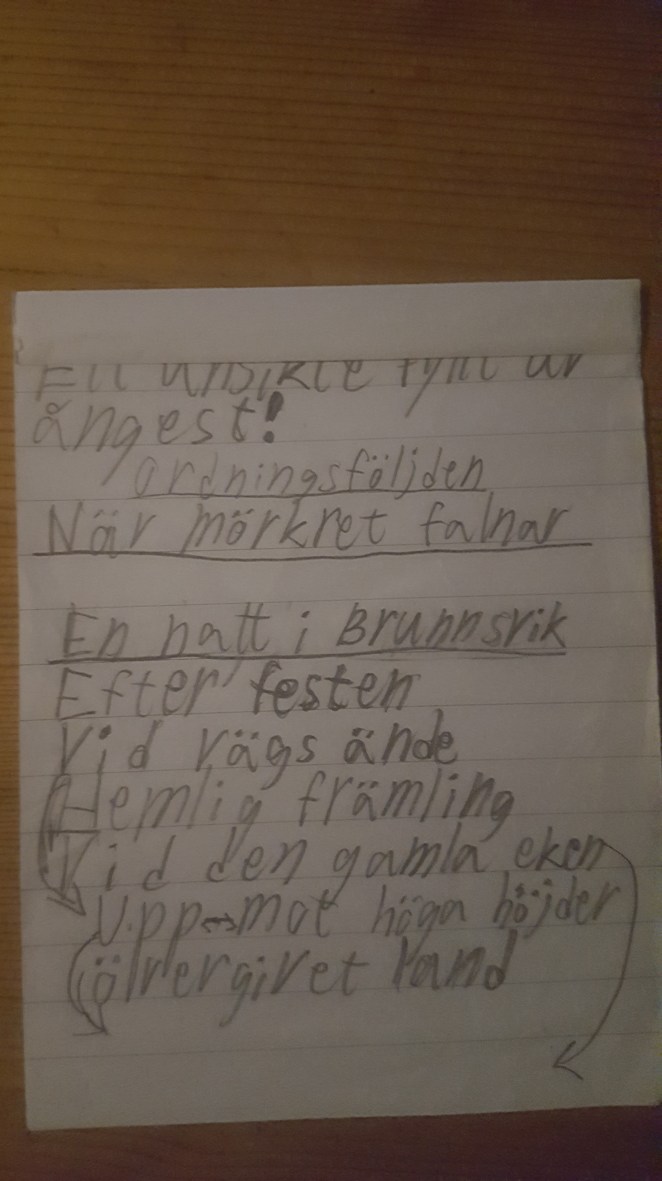 Ett ansikte fyllt av
ångest!
Ordningsföljden
När mörkret falnar
En natt i Brunnsvik
Efter festen
Vid vägs ände
Hemlig främling
Vid den gamla eken
Upp mot höga höjder
övergivet land